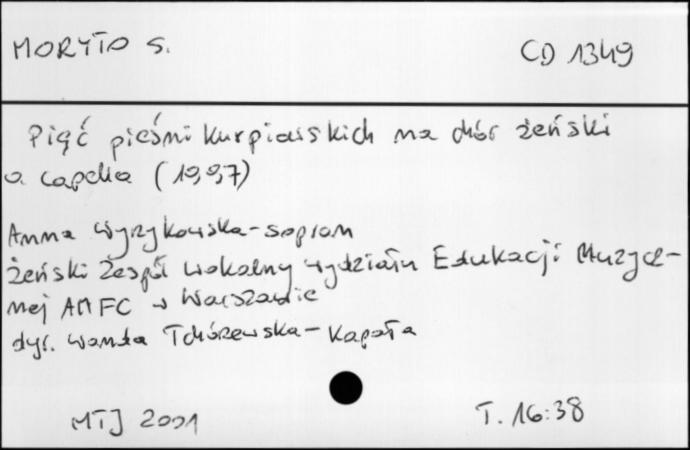 MORYTO S.
CD 1349
Pięć pieśni kurpiowskich na chór żeński
a capella (1997)
Anna Wyrzykowska-sopran
Żeński Zespół wokalny wydziału Edukacji Muzycz-
nej AMFC w Warszawie
dyr. Wanda Tchórzewska-Kapała
MTJ 2001
T. 16:38